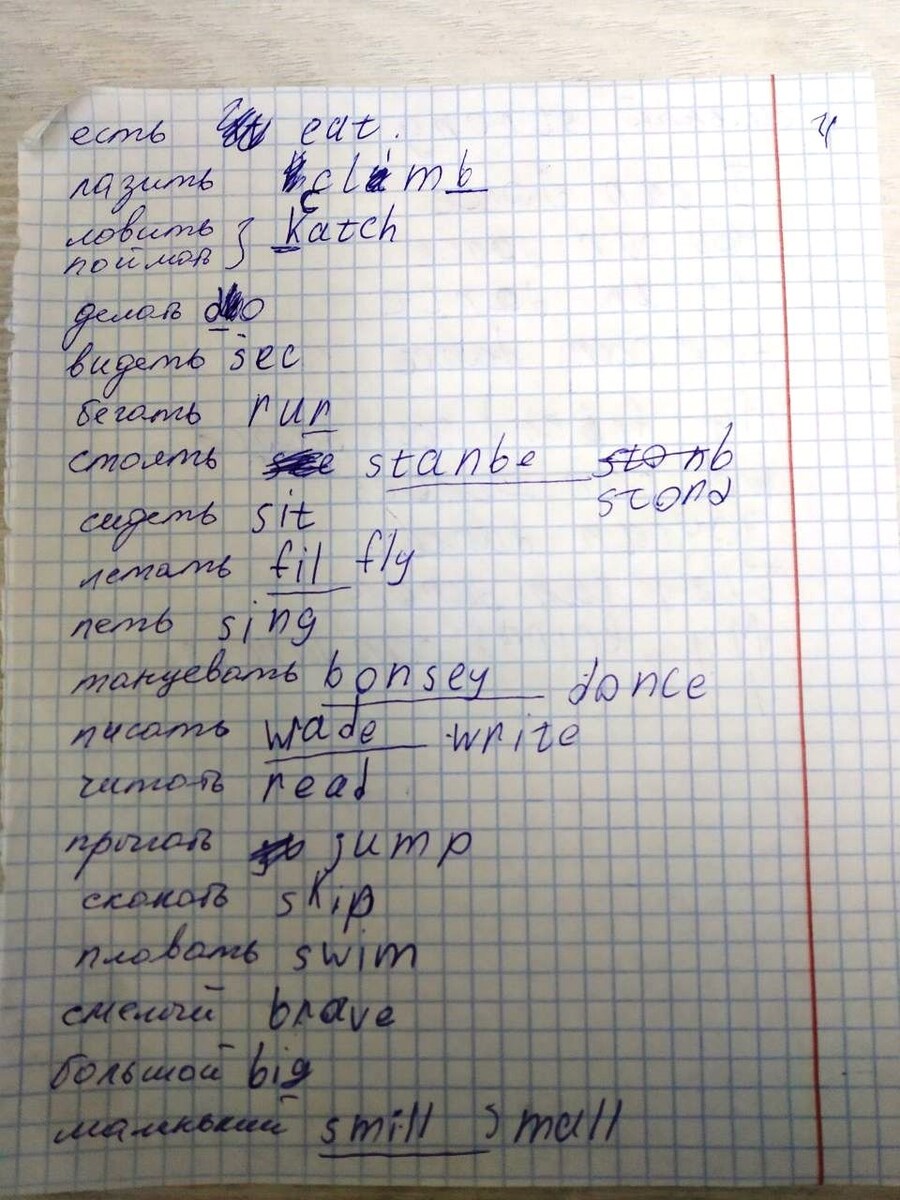 есть eat. ч
лазить climb
ловить } Catch
поймать
делать do
видеть see
бегать run
стоять stanbe stonb
stand
сидеть sit
летать fil fly
петь sing
танцевать bonsey dance
писать wade write
читать read
прыгать jump
скакать skip
плавать swim
смелый brave
большой big
маленький smill small